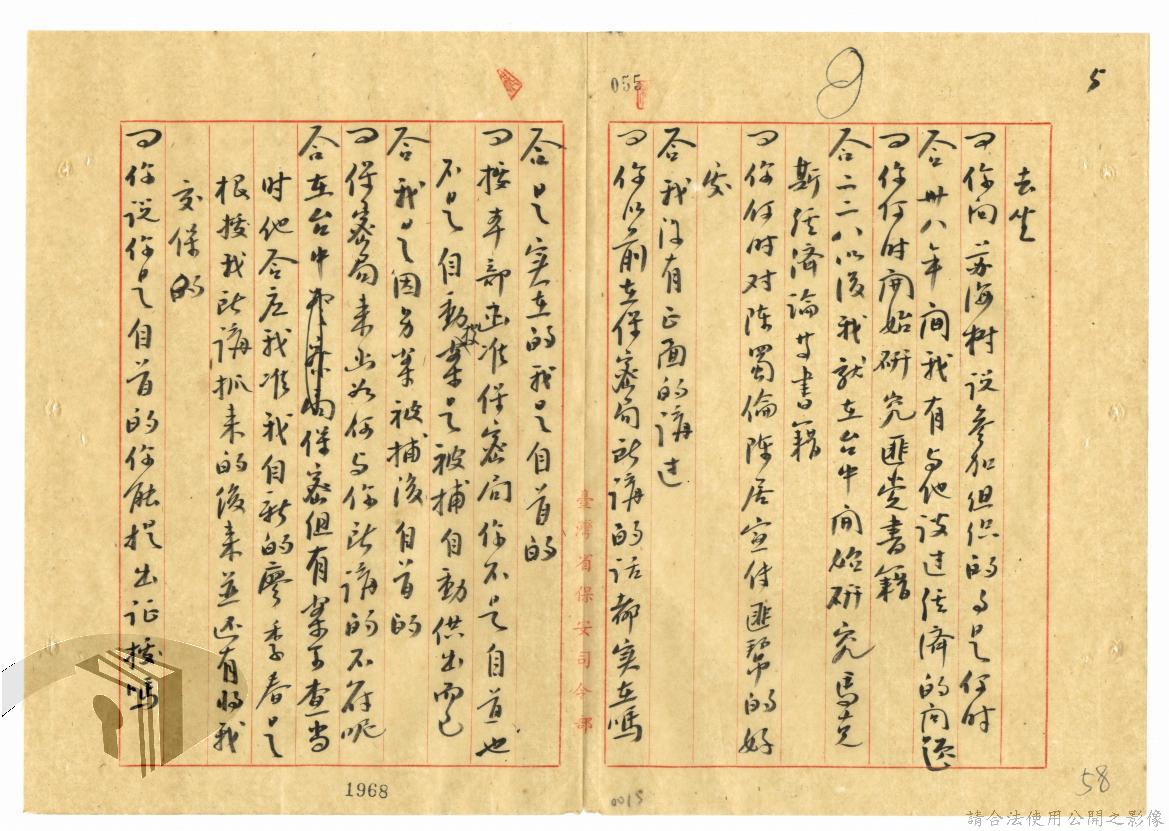 5
055
去坐
问 你向苏海树说参加组织的事是何时
答 卅八年间我有与他谈过经济的问题
问 你何时开始研究匪党书籍
答 二二八以后我就在台中开始研究马克
斯经济论等书籍
问 你何时对陈蜀伦陈居宣传匪帮的好
处
答 我没有正面的讲过
问 你以前在保密局所讲的话都实在吗
臺灣省保安司令部
答 是实在的我是自首的
问 按本部函准保密局你不是自首也
不是自动投案是被捕自动供出而已
答 我是因另案被捕后自首的
问 保密局来函为何与你所讲的不符呢
答 在台中 保密组有案可查当
时他答应我准我自新的廖季春是
根据我所讲抓来的后来并还有将我
交保的
问 你说你是自首的你能提出证据吗
1968
0015
58
請合法使用公開之影像